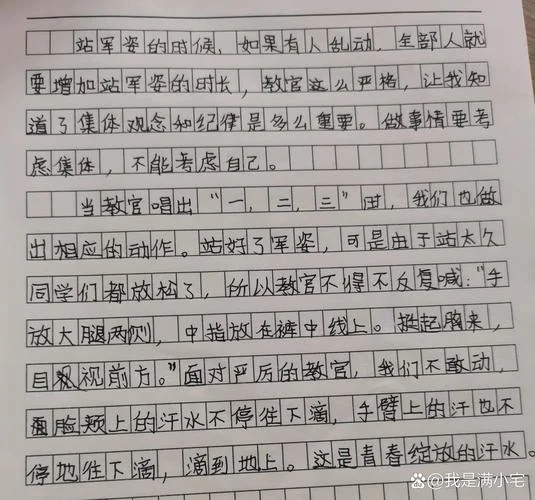 站军姿的时候，如果有人乱动，全部人就
要增加站军姿的时长，教官这么严格，让我知
道了集体观念和纪律是多么重要。做事情要考
虑集体，不能考虑自己。
当教官唱出“一，二，三”时，我们也做
出相应的动作。站好了军姿，可是由于站太久
同学们都放松了，所以教官不得不反复喊：“手
放大腿两侧，中指放在裤中线上。挺起胸来，
目视前方。”面对严厉的教官，我们不敢动，
脸颊上的汗水不停往下滴，手臂上的汗也不
停地往下滴，滴到地上。这是青春绽放的汗水。
@我是满小宅